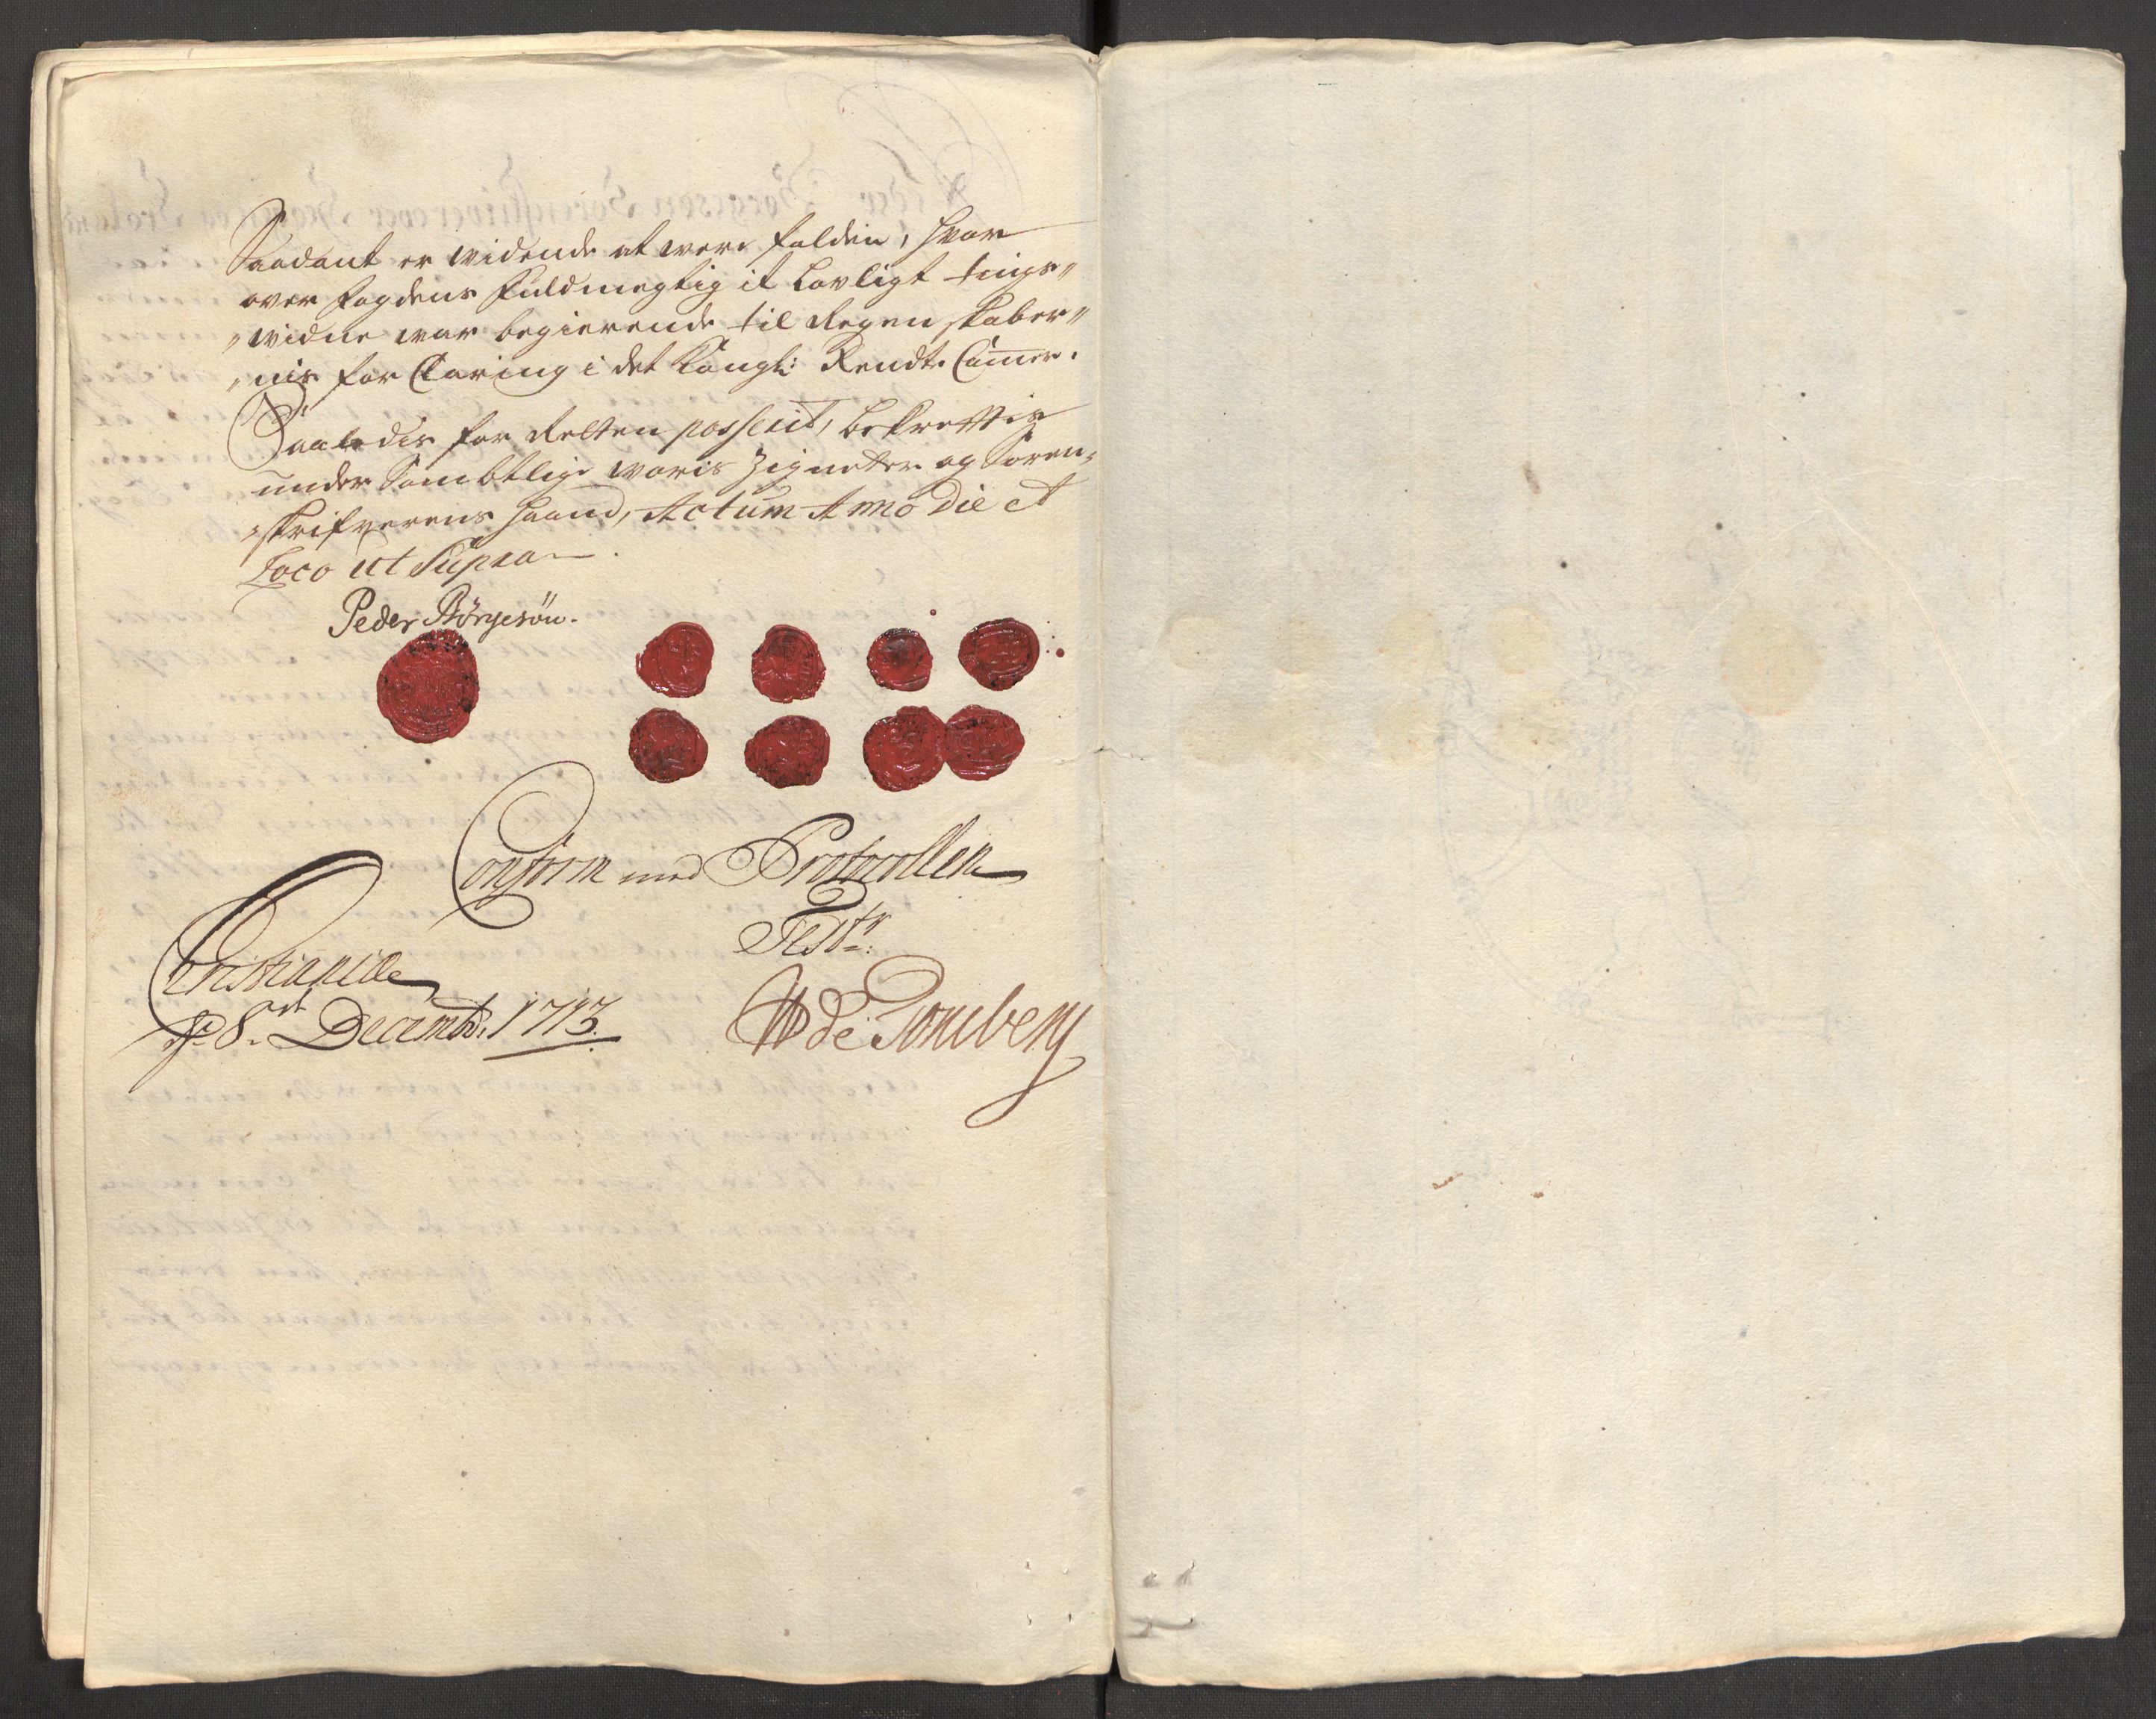 Saadant er vidende at were falden, hvor
over fogdens fuldmegtig it lovligt tings"
"widne war begierende til Regenskaber"
"nis forClaring i det Kongl: Rendte Cammer.
Saaledis for Retten passerit, bekrefftis
under Sambtlige woris Zigneter og Soren-
-skrifverens haand, Actum Anno Die et
Loco ut Supra
Peder Börgesön.
Conform med Protocollen
Test:
Christiania
d 8de Decembr: 1713.